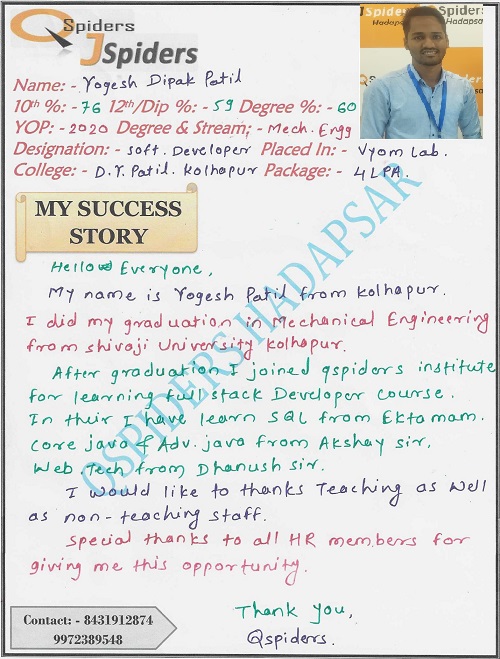 Spiders
JSpiders
Spiders
Spiders
Hadapsar
Name: - Yogesh Dipak Patil
10th %: - 76 12th/Dip %: - 59 Degree %: - 60
YOP: - 2020 Degree & Stream: - Mech. Engg
Designation: - Soft. Developer Placed In: - Vyom Lab.
College: - D.Y. Patil. Kolhapur Package: - 4 LPA.
MY SUCCESS
STORY
Hello Everyone,
My name is Yogesh Patil from Kolhapur.
I did my graduation in Mechanical Engineering
from shivaji University Kolhapur.
After graduation I joined qspiders institute
for learning full stack Developer course.
In their I have learn SQL from Ekta mam.
Core java & Adv. java from Akshay sir,
Web. Tech from Dhanush sir.
I would like to thanks Teaching as well
as non-teaching staff.
Special thanks to all HR members for
giving me this opportunity.
Thank you,
Qspiders.
Contact: - 8431912874
9972389548
QSPIDERS HADAPSAR